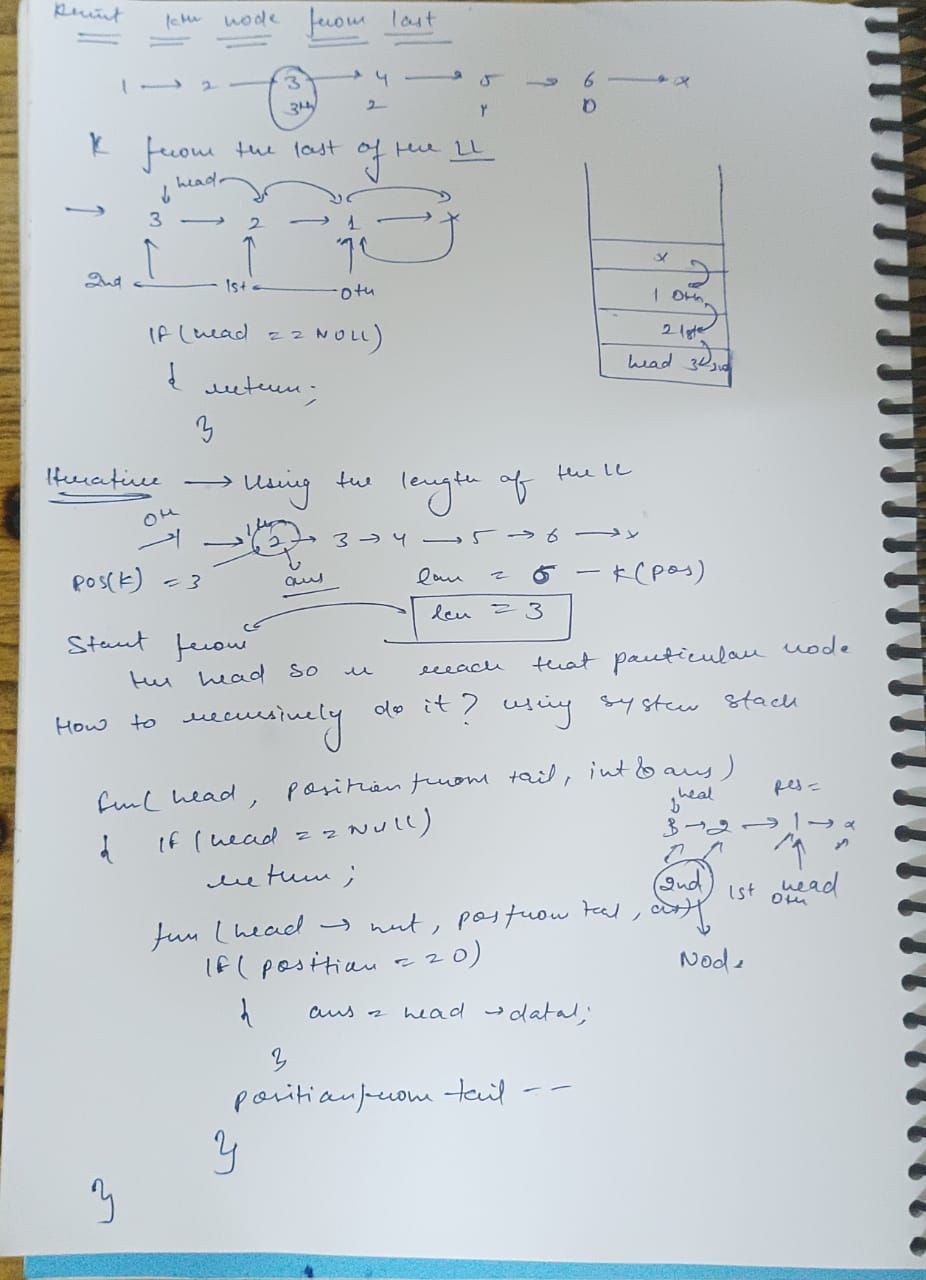 Print kth node from last
1 → 2 → 3 → 4 → 5 → 6 → x
3th 2 1 0
K from the last of the LL
head
→ 3 → 2 → 1 → x
2nd ← 1st ← 0th
x
1 0th
2 1st
head 3 2nd
If (head == NULL)
{ return;
}
Iterative → Using the length of the LL
0th 1th
1 → 2 → 3 → 4 → 5 → 6 → x
pos(K) = 3 ans len = 6 - K(pos)
len = 3
Start from
the head so u reach that particular node
How to recursively do it? using system stack
fun( head, position from tail, int & ans)
{ If (head == NULL)
return;
head pos =
3 → 2 → 1 → x
2nd 1st 0th head
Node
fun (head → next, pos from tail, ans)
If ( position == 0)
{ ans = head → data;
}
position from tail --
}
}